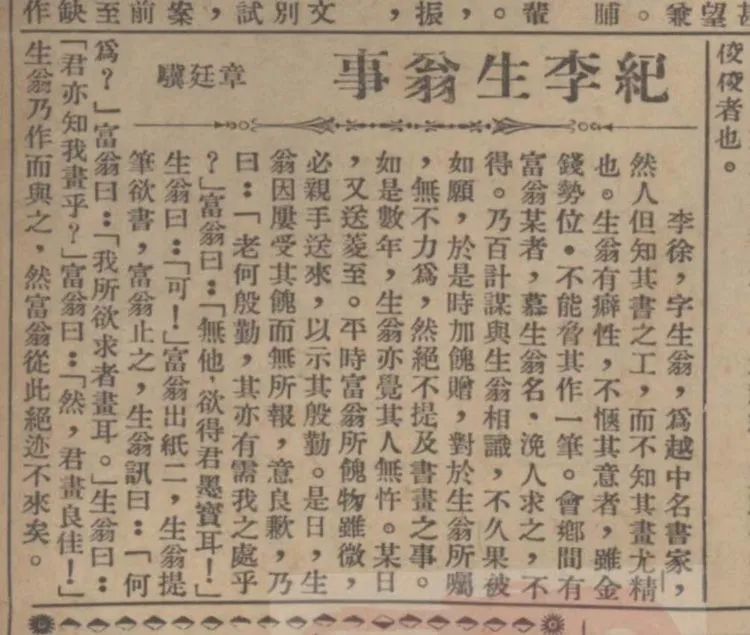 甚
望
兼
。
脯
輩
。
，
振
，
文
別
試
，
案
前
至
缺
作
佼佼者也。
紀李生翁事
章廷驥
李徐，字生翁，爲越中名書家，
然人但知其書之工，而不知其畫尤精
也。生翁有癖性，不愜其意者，雖金
錢勢位。不能脅其作一筆。會鄉間有
富翁某者，慕生翁名、浼人求之，不
得。乃百計謀與生翁相識，不久果被
如願，於是時加餽贈，對於生翁所囑
，無不力爲，然絕不提及書畫之事。
如是數年，生翁亦覺其人無忤。某日
，又送菱至。平時富翁所餽物雖微，
必親手送來，以示其殷勤。是日，生
翁因屢受其餽而無所報，意良歉，乃
曰：「老何殷勤，其亦有需我之處乎
？」富翁曰：「無他，欲得君墨寶耳！」
生翁曰：「可！」富翁出紙二，生翁提
筆欲書，富翁止之，生翁訊曰：「何
爲？」富翁曰：「我所欲求者畫耳。」生翁曰：
「君亦知我畫乎？」富翁曰：「然，君畫良佳！」
生翁乃作而與之，然富翁從此絕迹不來矣。